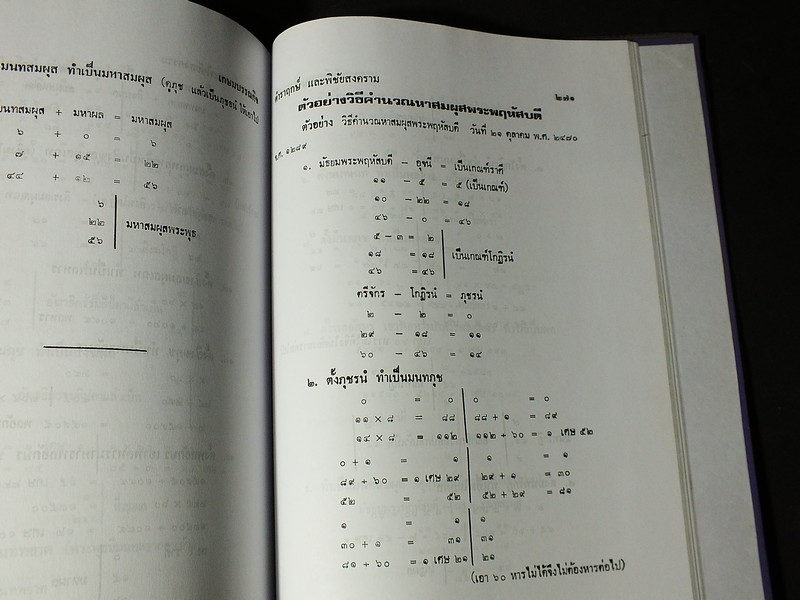 เกษมบรรณกิจ
มนทสมผุส ทำเป็นมหาสมผุส (ดูภุช แล้วเป็นภุชธน์ ให้เอาไป
มนทสมผุส + มหาผล = มหาสมผุส
๖ + ๐ = ๖
๗ + ๑๕ = ๒๒
๔๔ + ๑๒ = ๕๖
๖
๒๒ มหาสมผุสพระพุธ
๕๖
ตำราฤกษ์ และพิชัยสงคราม ๒๗๑
ตัวอย่างวิธีคำนวณหาสมผุสพระพฤหัสบดี
ตัวอย่าง วิธีคำนวณหาสมผุสพระพฤหัสบดี วันที่ ๒๑ ตุลาคม พ.ศ. ๒๔๗๐
จ.ศ. ๑๒๘๙
๑. มัธยมพระพฤหัสบดี - อุจน์ = เป็นเกณฑ์ราศี
๑๑ - ๕ = ๕ (เป็นเกณฑ์)
๑๐ - ๒๒ = ๑๘
๔๖ - ๐ = ๔๖
๕ - ๓ = ๒
๑๘ = ๑๘ เป็นเกณฑ์โกฏิรน์
๔๖ = ๔๖
ตรีจักร - โกฏิรน์ = ภุชรน์
๒ - ๒ = ๐
๒๙ - ๑๘ = ๑๑
๖๐ - ๔๖ = ๑๔
๒. ตั้งภุชรน์ ทำเป็นมนทภุช
๐ = ๐ ๐ = ๐
๑๑ × ๘ = ๘๘ ๘๘ + ๑ = ๘๙
๑๔ × ๘ = ๑๑๒ ๑๑๒ ÷ ๖๐ = ๑ เศษ ๕๒
๐ + ๑ = ๑ ๑ = ๑
๘๙ ÷ ๖๐ = ๑ เศษ ๒๙ ๒๙ + ๑ = ๓๐
๕๒ = ๕๒ ๕๒ + ๒๙ = ๘๑
๑ = ๑ ๑
๓๐ + ๑ = ๓๑ ๓๑
๘๑ ÷ ๖๐ = ๑ เศษ ๒๑ ๒๑
(เอา ๖๐ หารไม่ได้จึงไม่ต้องหารต่อไป)